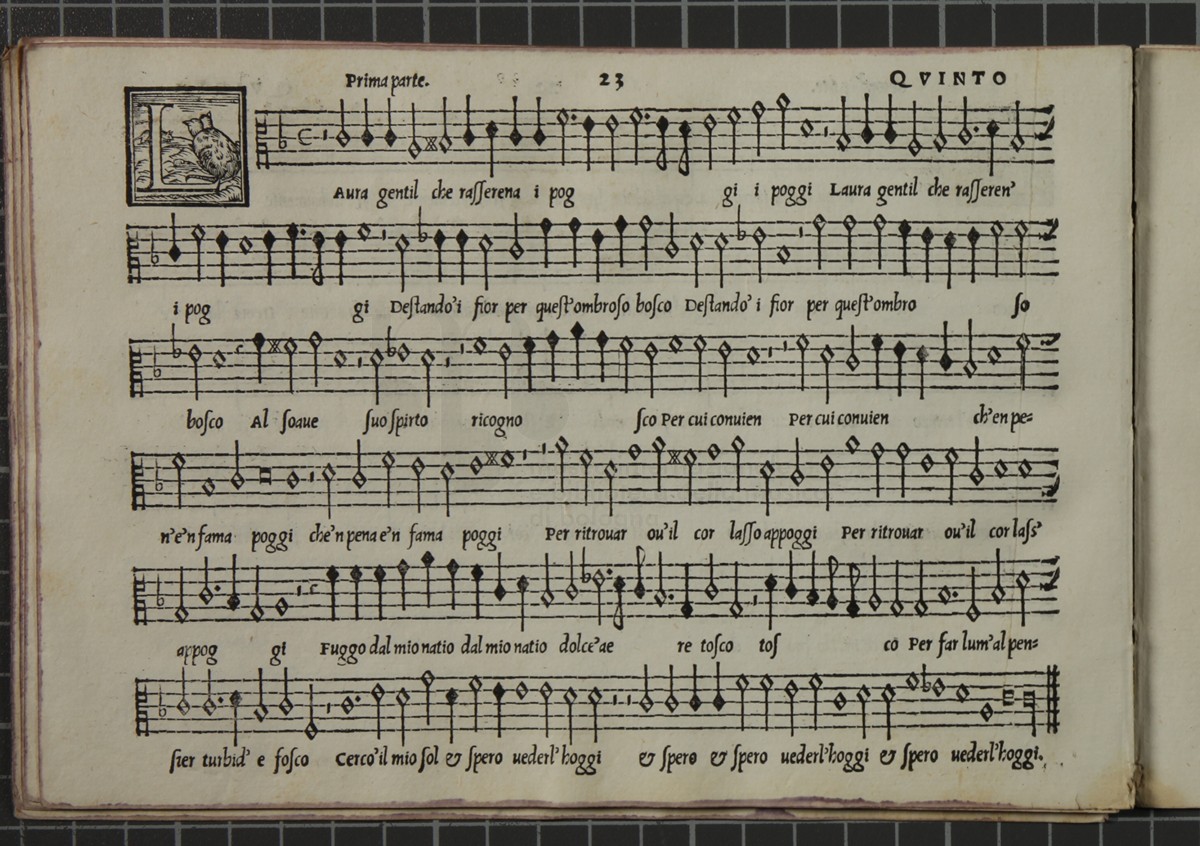 Prima parte. 23 QVINTO
L
Aura gentil che raſſerena i pog gi i poggi Laura gentil che raſſeren'
i pog gi Deſtando'i fior per queſt'ombroſo boſco Deſtando' i fior per queſt'ombro ſo
boſco Al ſoaue ſuo ſpirto ricogno ſco Per cui conuien Per cui conuien ch'en pe=
n'e'n fama poggi che'n pena e'n fama poggi Per ritrouar ou'il cor laſſo appoggi Per ritrouar ou'il cor laſs'
appog gi Fuggo dal mio natio dal mio natio dolce'ae re toſco toſ co Per far lum'al pen=
ſier turbid' e foſco Cerco'il mio ſol & ſpero uederl'hoggi & ſpero & ſpero uederl'hoggi & ſpero uederl'hoggi.